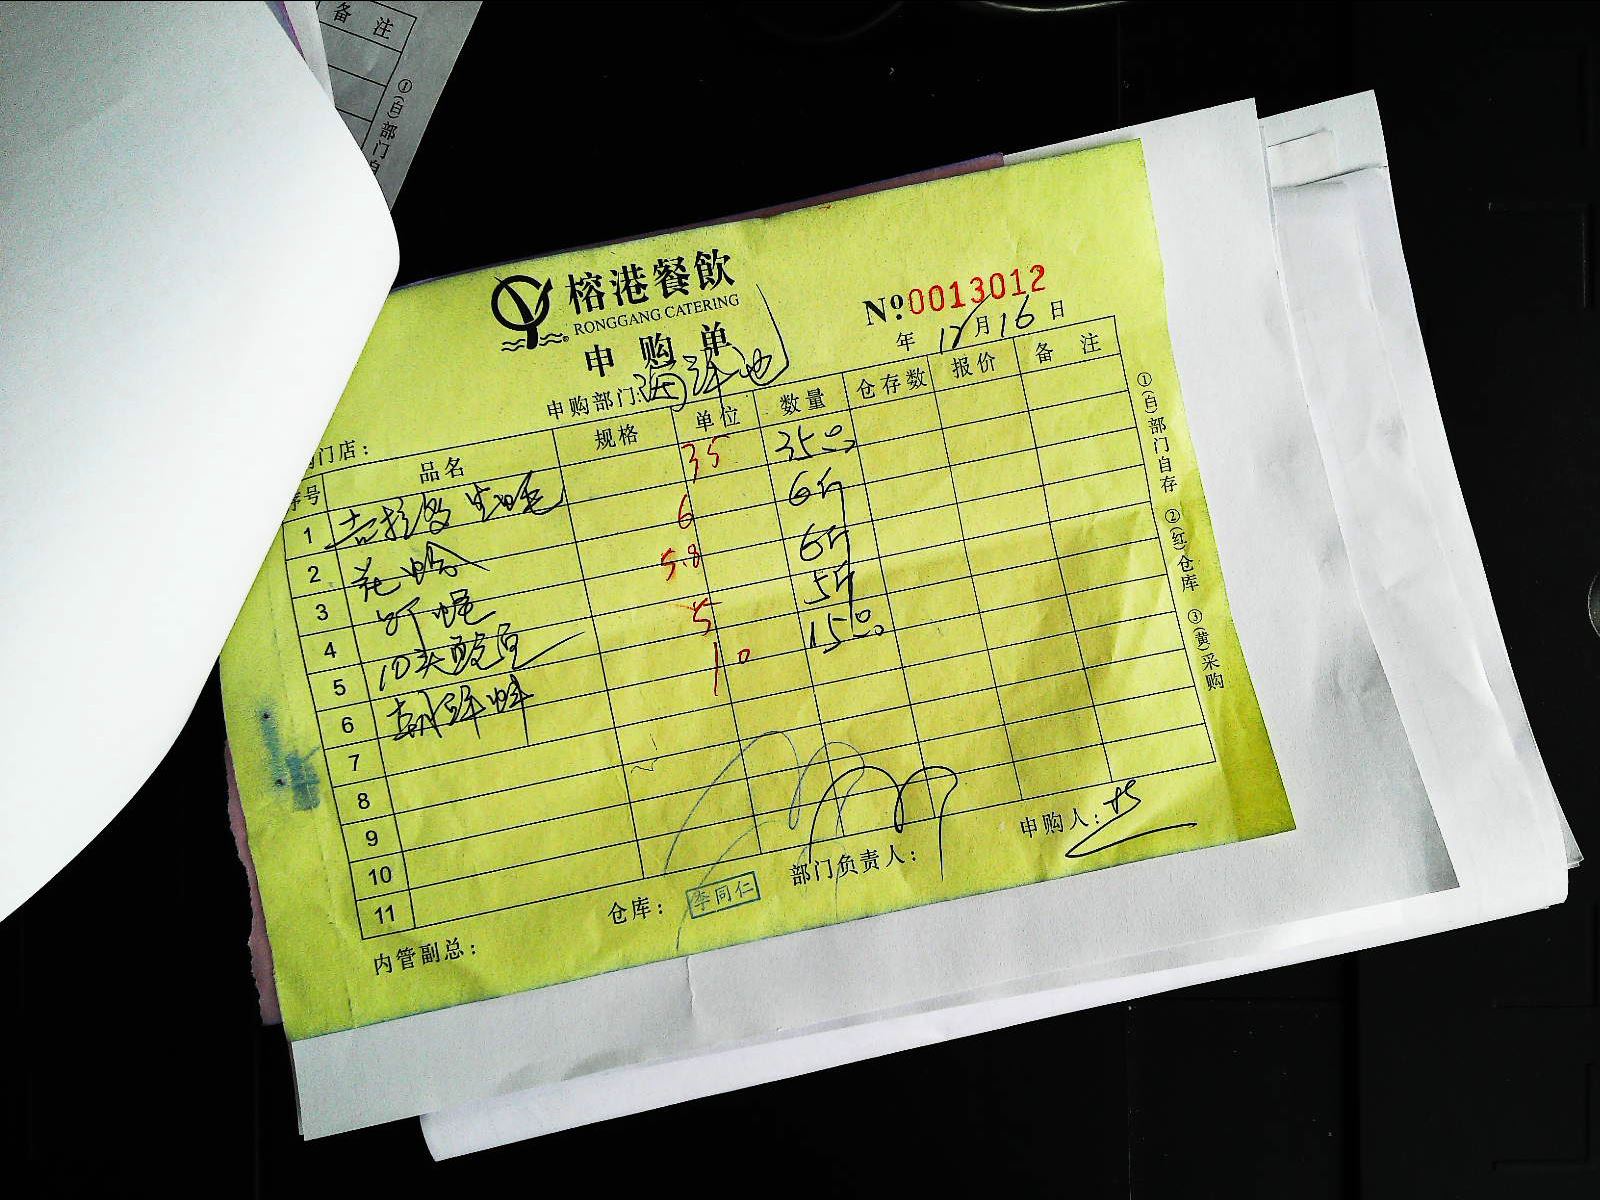 备 注
①(白)部门自
榕港餐飲
RONGGANG CATERING
申购单
№0013012
年 12月16日
申购部门:海鲜池
门店:
序号 品名 规格 单位 数量 仓存数 报价 备 注
1 吉拉多生蚝 35 35只
2 花蛤 6 6斤
3 蛏 5.8 6斤
4 10头鲍鱼 5 5斤
5 朝鲜蚌 10 15只
6
7
8
9
10
11
①(白)部门自存 ②(红)仓库 ③(黄)采购
内管副总: 仓库: 李同仁 部门负责人: 申购人: